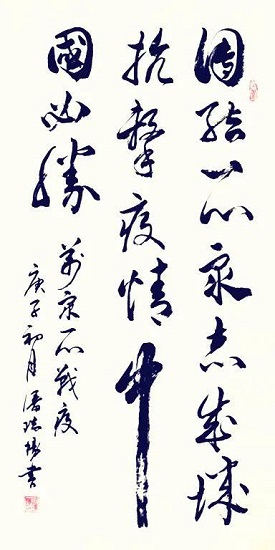 團結一心衆志成城
抗擊疫情中
國必勝
萬衆一心戰疫
庚子初月潘書